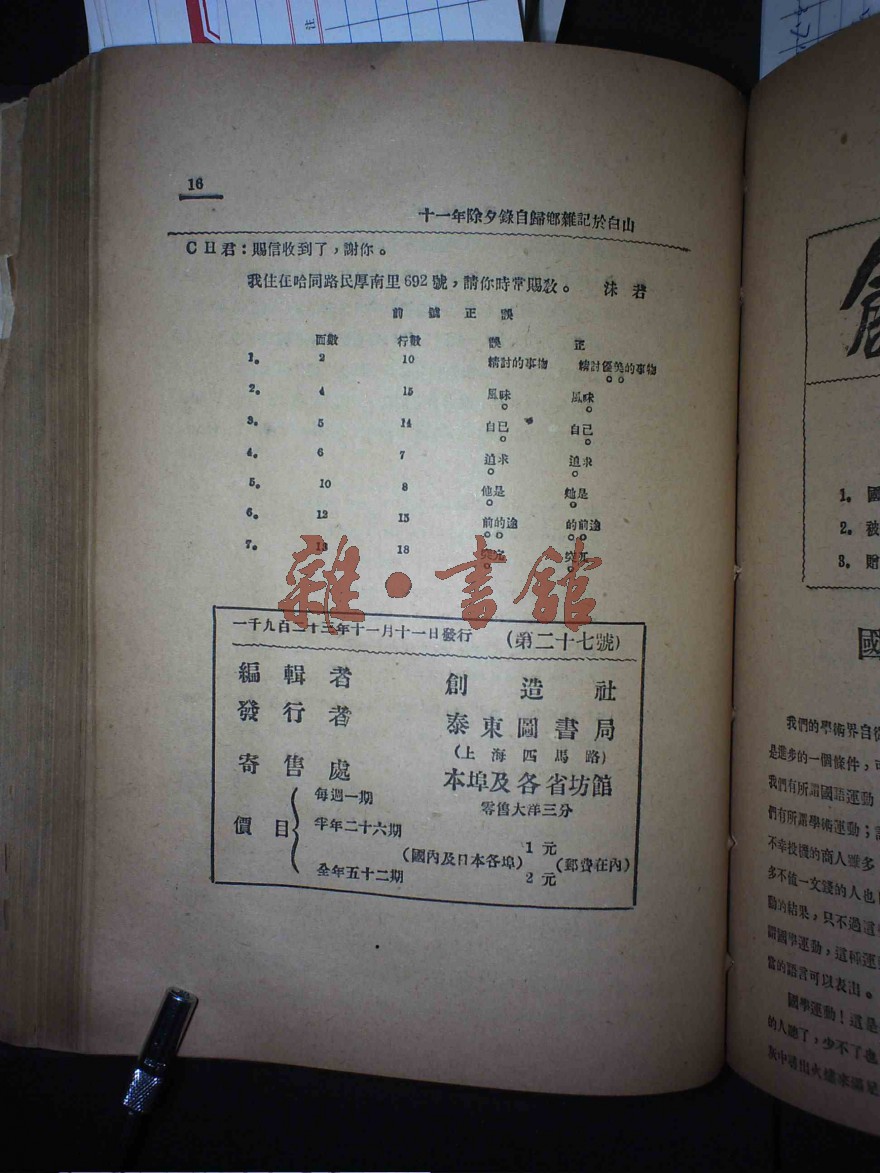 注
16
十一年除夕錄自歸鄉雜記於白山
CH君：賜信收到了，謝你。
我住在哈同路民厚南里692號，請你時常賜敎。 沫若
前號正誤
面數 行數 誤 正
1。 2 10 精討的事物 精討優美的事物
2。 4 15 風味 風味
3。 5 14 自已 自己
4。 6 7 追求 追求
5。 10 8 他是 她是
6。 12 15 前的途 的前途
7。 13 18
雜·書館
一千九百二十三年十一月十一日發行 (第二十七號)
編輯者 創造社
發行者 泰東圖書局
(上海四馬路)
寄售處 本埠及各省坊館
價目
每週一期 零售大洋三分
半年二十六期 1元
(國內及日本各埠) (郵費在內)
全年五十二期 2元
1。 國
2。 被
3。 贈
國
我們的學術界自從
是進步的一個條件，
我們有所謂國語運動
們有所謂學術運動；
不幸投機的商人眾多
多不值一文錢的人也
動的結果，只不過這
謂國學運動，這種運
當的語言可以表出。
國學運動！這是
的人聽了，少不了也
灰中尋出火燼來滿足